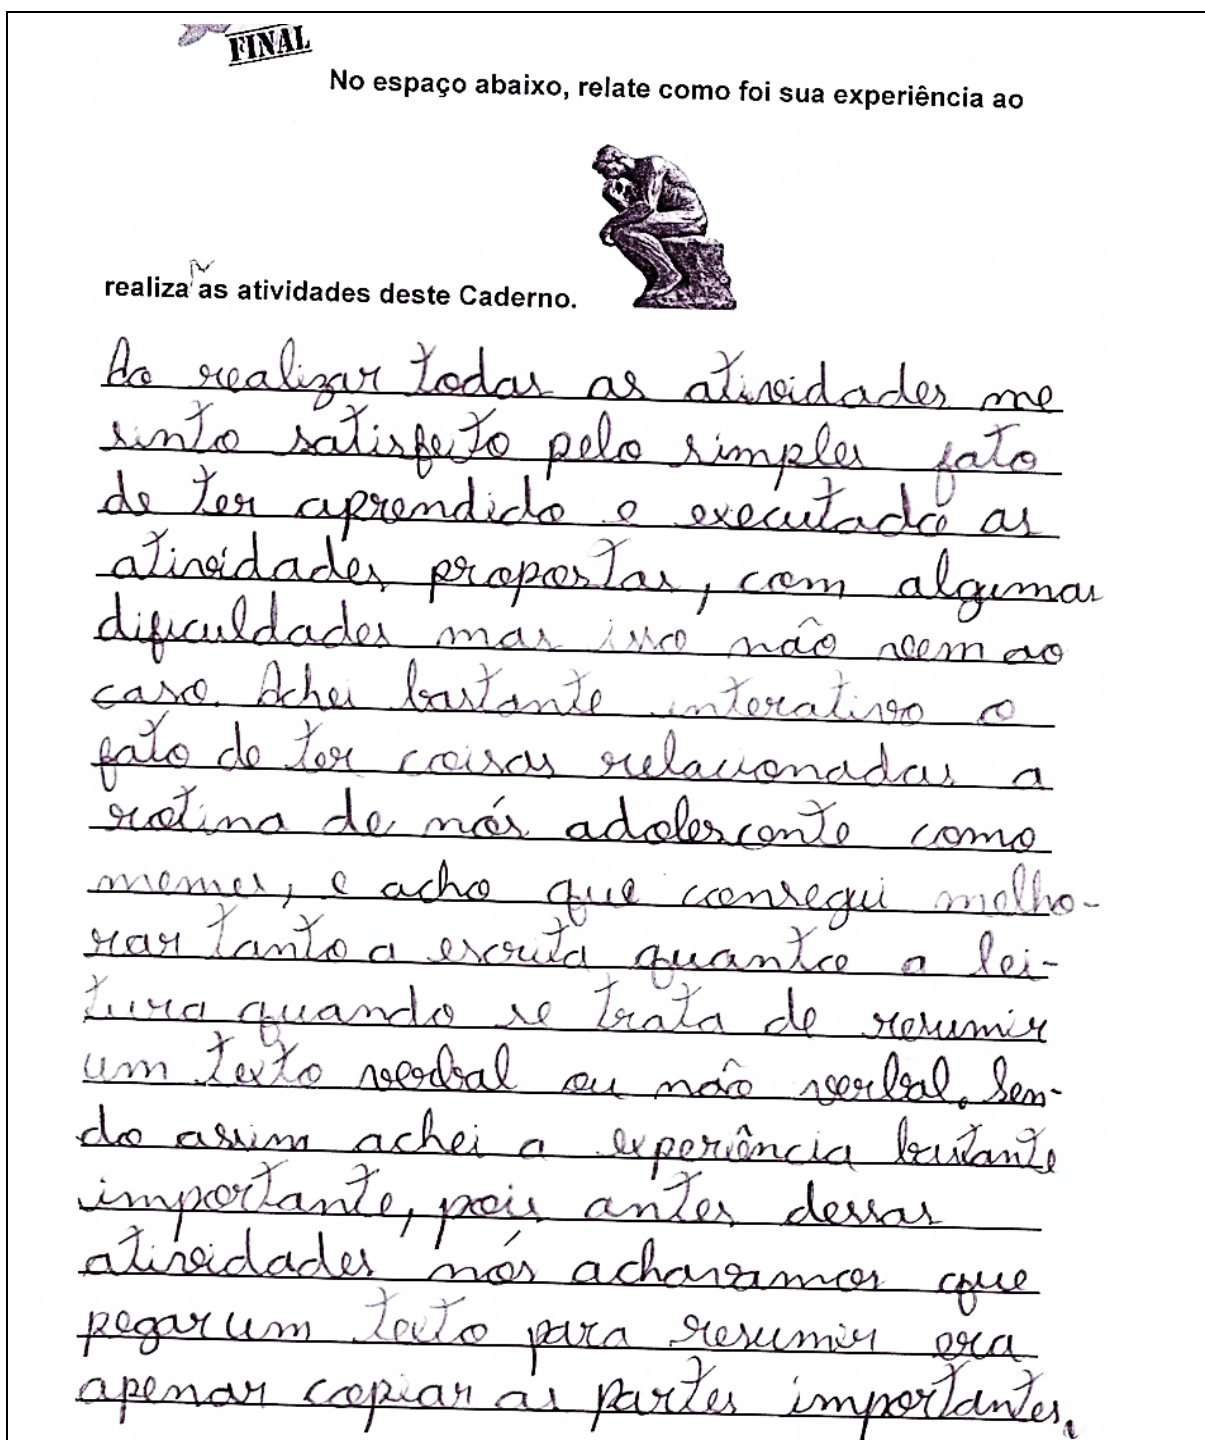 FINAL
No espaço abaixo, relate como foi sua experiência ao
realizar as atividades deste Caderno.
Ao realizar todas as atividades me
sinto satisfeito pelo simples fato
de ter aprendido e executado as
atividades propostas, com algumas
dificuldades mas isso não vem ao
caso. Achei bastante interativo o
fato de ter coisas relacionadas a
rotina de nós adolescente como
memes, e acho que consegui melho-
rar tanto a escrita quanto a lei-
tura quando se trata de resumir
um texto verbal ou não verbal. Sen-
do assim achei a experiência bastante
importante, pois antes dessas
atividades nós achavamos que
pegar um texto para resumir era
apenas copiar as partes importantes.